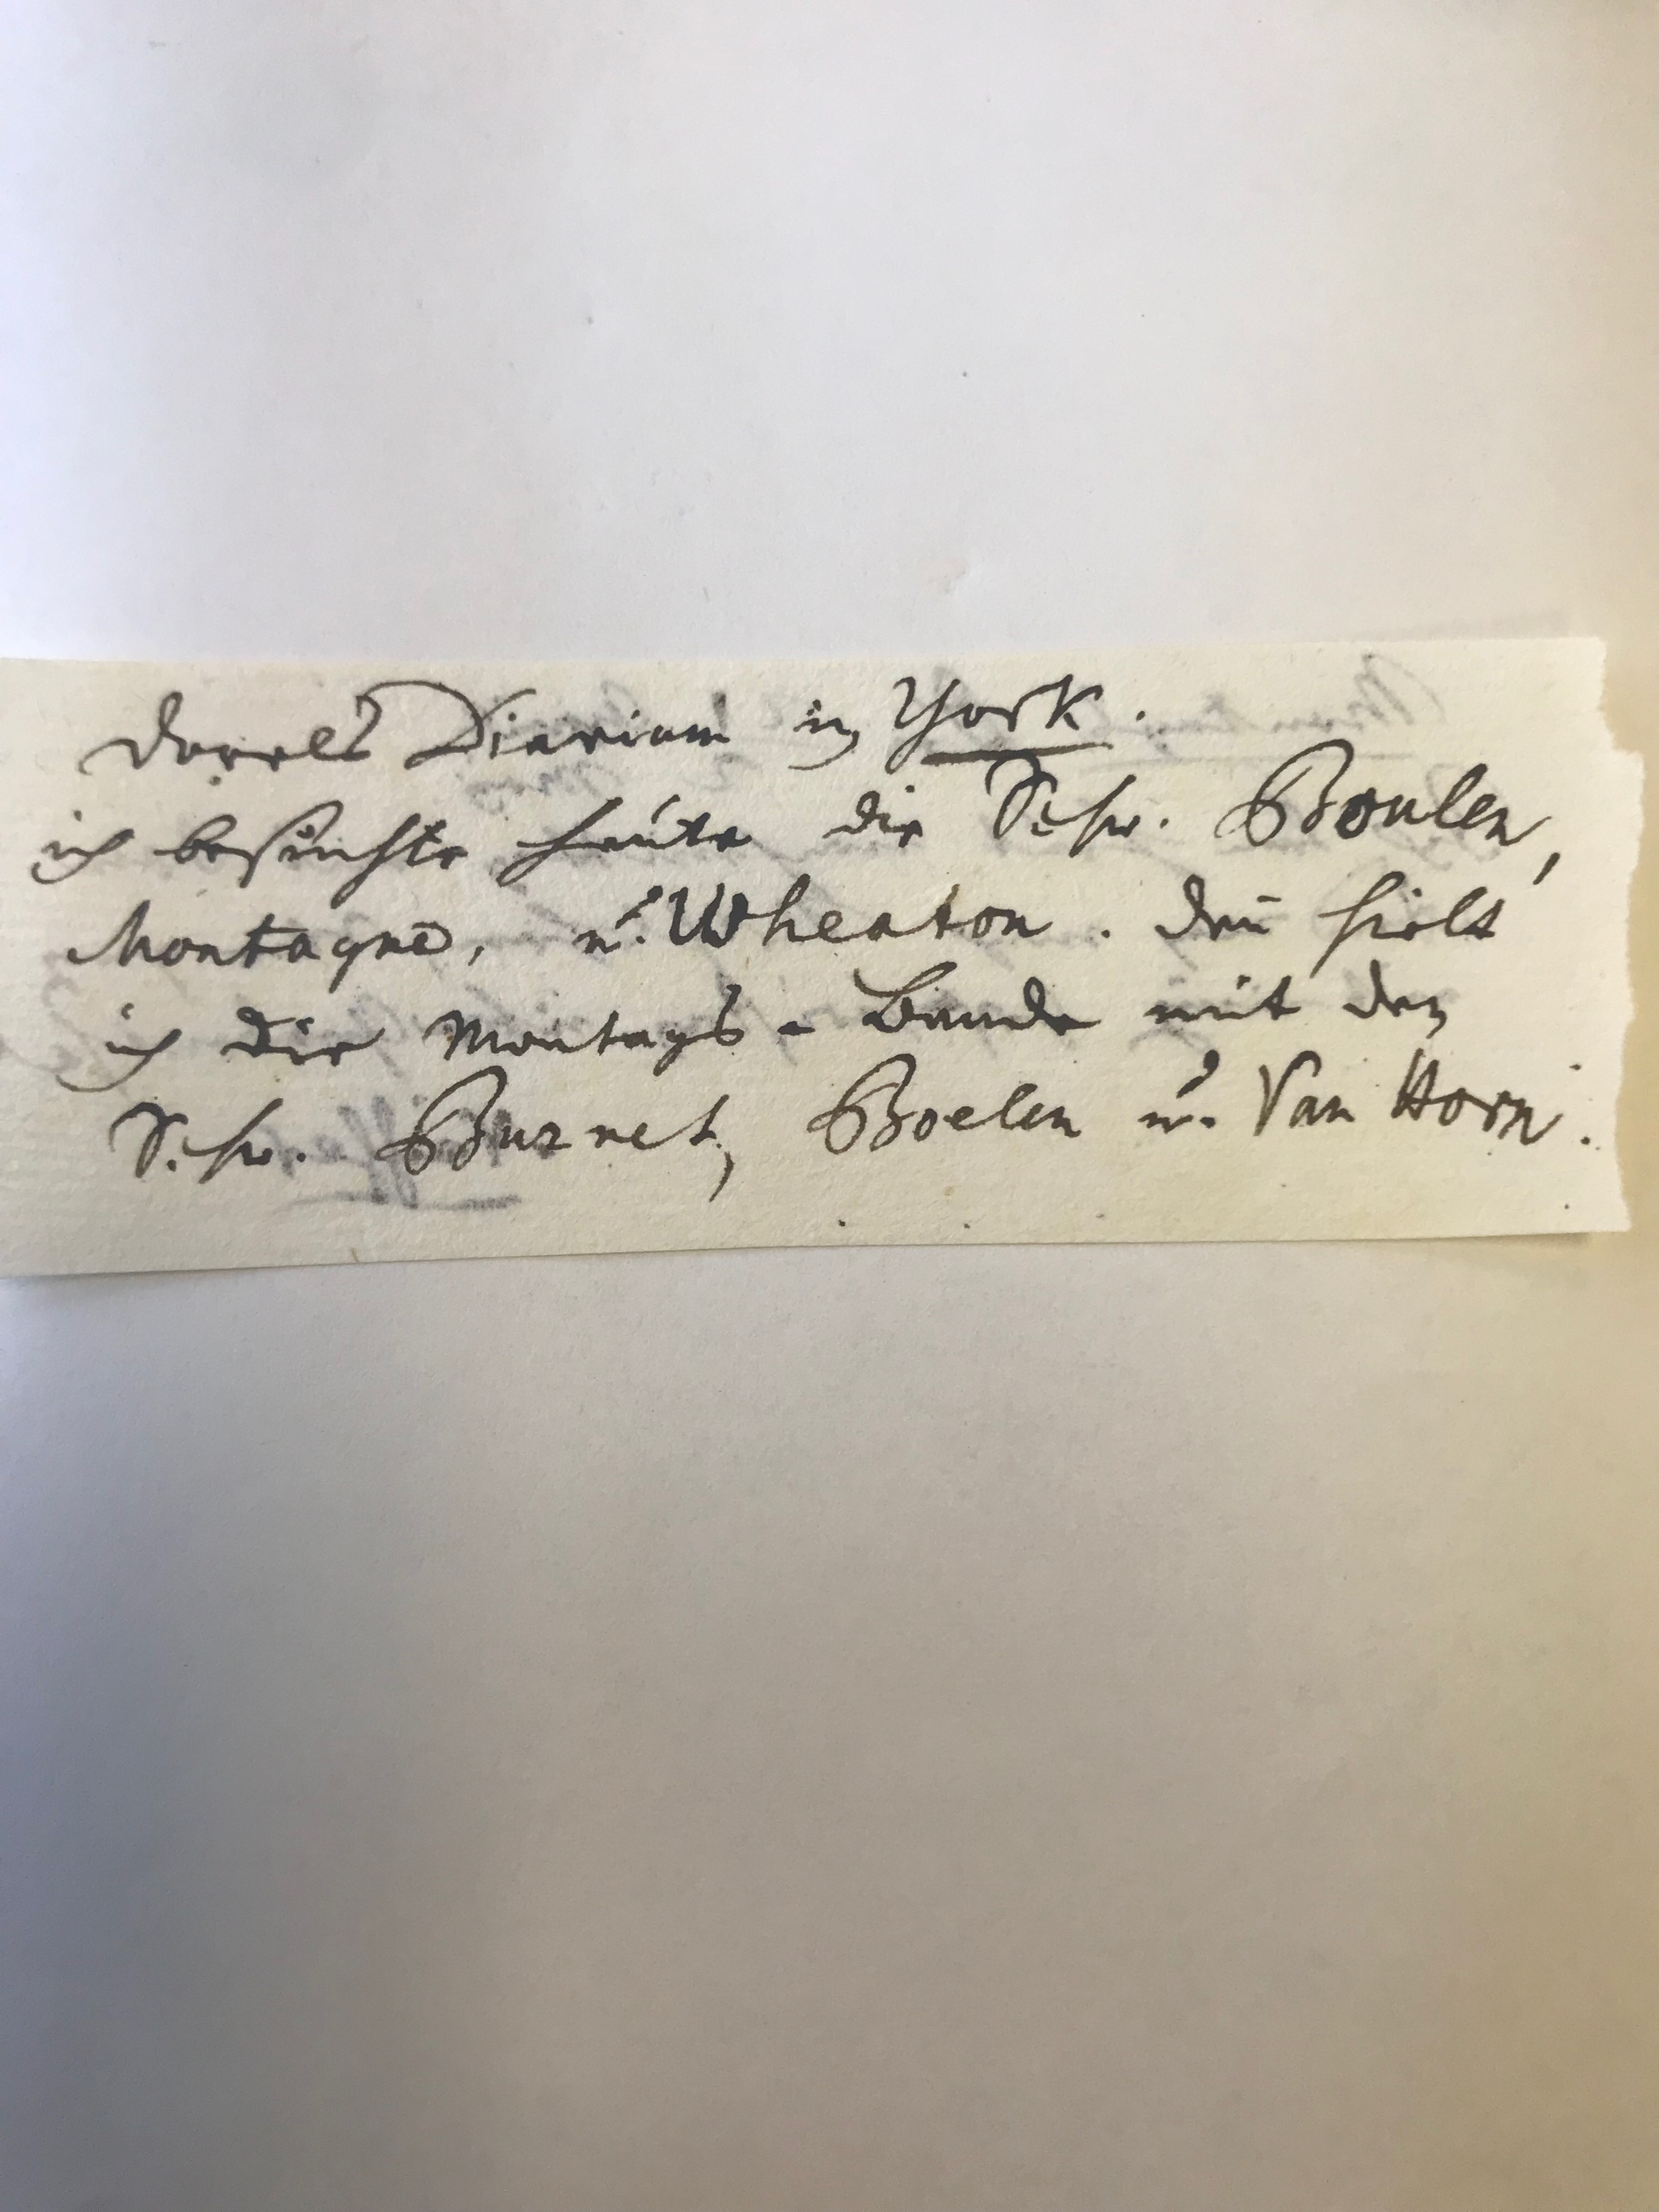 Doerels Diarium in York.
ich besuchte heute die Schw. Boulen,
Montagne, u. Wheaton. den hielt
ich die Montags-Bande mit den
Schw. Burnet, Boelen u. Van Horn.